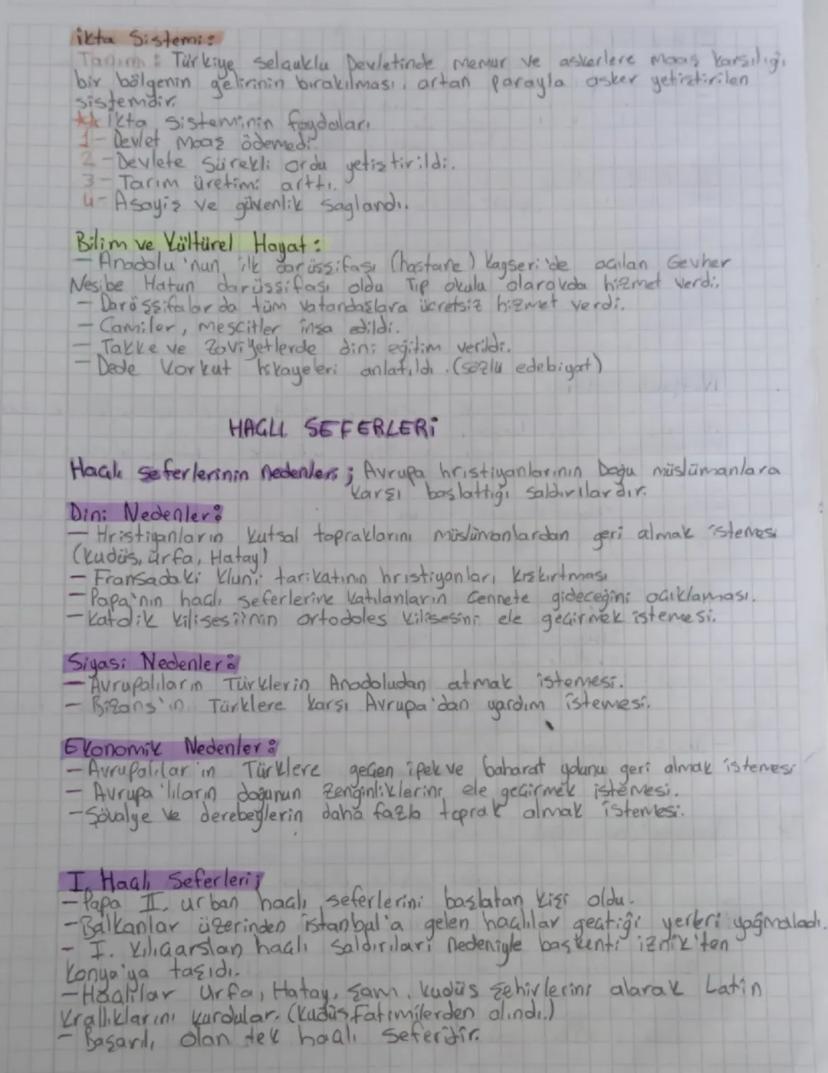 ikta Sistemi:
Tanım: Türkiye Selçuklu Devletinde memur ve askerlere maaş karşılığı
bir bölgenin gelirinin bırakılması, artan parayla asker yetiştirilen
sistemdir.
** İkta sisteminin faydaları
1- Devlet maaş ödemedi.
2- Devlete Sürekli ordu yetiştirildi.
3- Tarım üretimi arttı.
4- Asayiş ve güvenlik sağlandı.
Bilim ve Kültürel Hayat:
- Anadolu'nun ilk darüssifası (hastane) Kayseri'de açılan Gevher
Nesibe Hatun darüssifası oldu Tıp okulu olarakda hizmet verdi.
- Darüssifalarda tüm vatandaşlara ücretsiz hizmet verdi.
- Camiler, mescitler inşa edildi.
- Takke ve Zaviyetlerde dini eğitim verildi.
- Dede Korkut hikayeleri anlatıldı. (sözlü edebiyat)
HAÇLI SEFERLERİ
Haçlı seferlerinin nedenleri; Avrupa hristiyanlarının Doğu müslümanlara
karşı başlattığı saldırılardır.
Dini Nedenler:
- Hristiyanların kutsal topraklarını müslümanlardan geri almak istemesi
(Kudüs, Urfa, Hatay)
- Fransadaki Kluni tarikatının hristiyanları kışkırtması
- Papa'nın haçlı seferlerine katılanların cennete gideceğini açıklaması.
- Katolik kilisesi'nin ortodoles kilisesini ele geçirmek istemesi.
Siyasi Nedenler:
- Avrupalıların Türklerin Anadoludan atmak istemesi.
- Bizans'ın Türklere karşı Avrupa'dan yardım istemesi.
Ekonomik Nedenler:
- Avrupalılar'ın Türklere geçen ipek ve baharat yolunu geri almak istemesi
- Avrupa'lıların doğunun zenginliklerini ele geçirmek istemesi.
- Şövalye ve derebeylerin daha fazla toprak almak istemesi.
I. Haçlı Seferleri;
- Papa II. urban haçlı seferlerini başlatan kişi oldu.
- Balkanlar üzerinden istanbul'a gelen haçlılar geçtiği yerleri yağmaladı.
- I. Kılıçarslan haçlı saldırıları nedeniyle başkenti iznik'ten
Konya'ya taşıdı.
- Haçlılar Urfa, Hatay, Şam, Kudüs Şehirlerini alarak Latin
Krallıklarını kurdular. (Kudüs Fatimilerden alındı.)
- Başarılı olan tek haçlı seferidir.